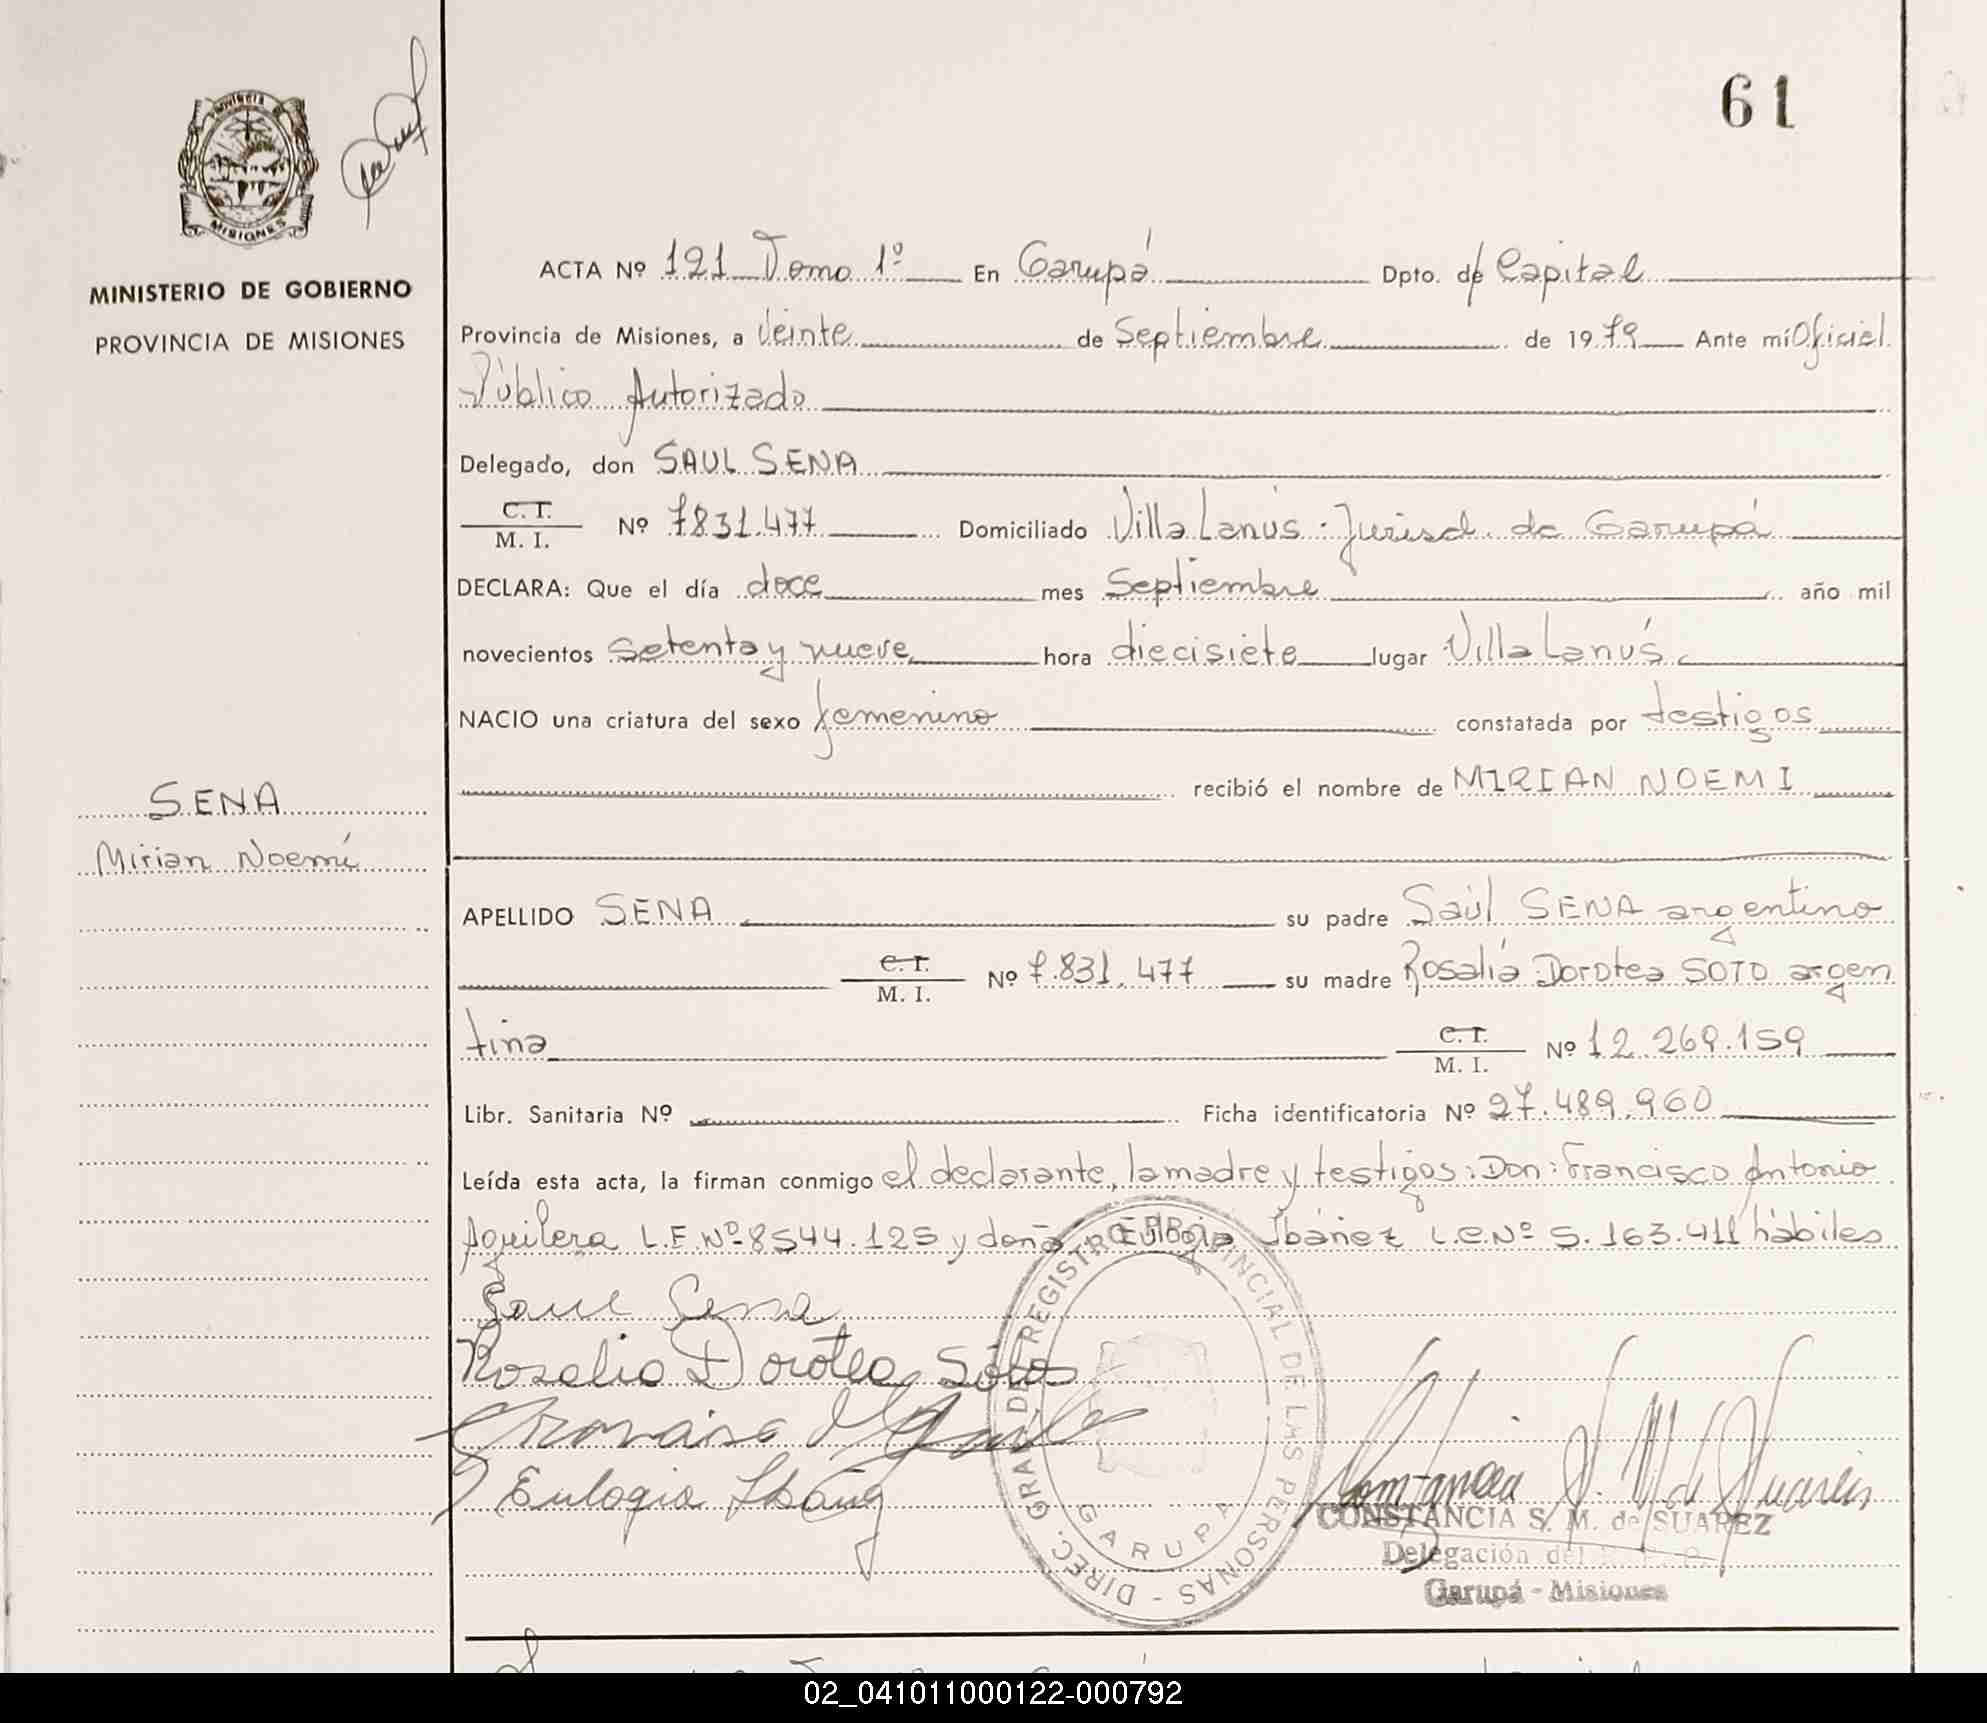 61
PROVINCIA DE
MISIONES
MINISTERIO DE GOBIERNO
PROVINCIA DE MISIONES
ACTA Nº 121 Tomo 1º En Garupá Dpto. de Capital
Provincia de Misiones, a Veinte de Septiembre de 1979 Ante mí Oficial
Público Autorizado
Delegado, don SAUL SENA
C. I.
M. I. Nº 7831.477 Domiciliado Villa Lanús - Jurisd. de Garupá
DECLARA: Que el día doce mes Septiembre año mil
novecientos setenta y nueve hora diecisiete lugar Villa Lanús
NACIO una criatura del sexo femenino constatada por testigos
recibió el nombre de MIRIAN NOEMI
SENA
Mirian Noemí
APELLIDO SENA su padre Saúl SENA argentino
C. I.
M. I. Nº 7.831.477 su madre Rosalia Dorotea SOTO argen
tina C. I.
M. I. Nº 12.269.159
Libr. Sanitaria Nº Ficha identificatoria Nº 27.489.960
Leída esta acta, la firman conmigo el declarante, la madre y testigos: Don: Francisco Antonio
Aguilera L.E.Nº 8544.125 y doña Eulogia Ibáñez L.C.Nº 5.163.411 hábiles
Saul Sena
Rosalia Dorotea Soto
Eulogia Ibáñez
DIREC. GRAL. DE REGISTRO PROVINCIAL DE LAS PERSONAS -
GARUPA
CONSTANCIA S. M. de SUAREZ
Delegación del
Garupá - Misiones
02_041011000122-000792